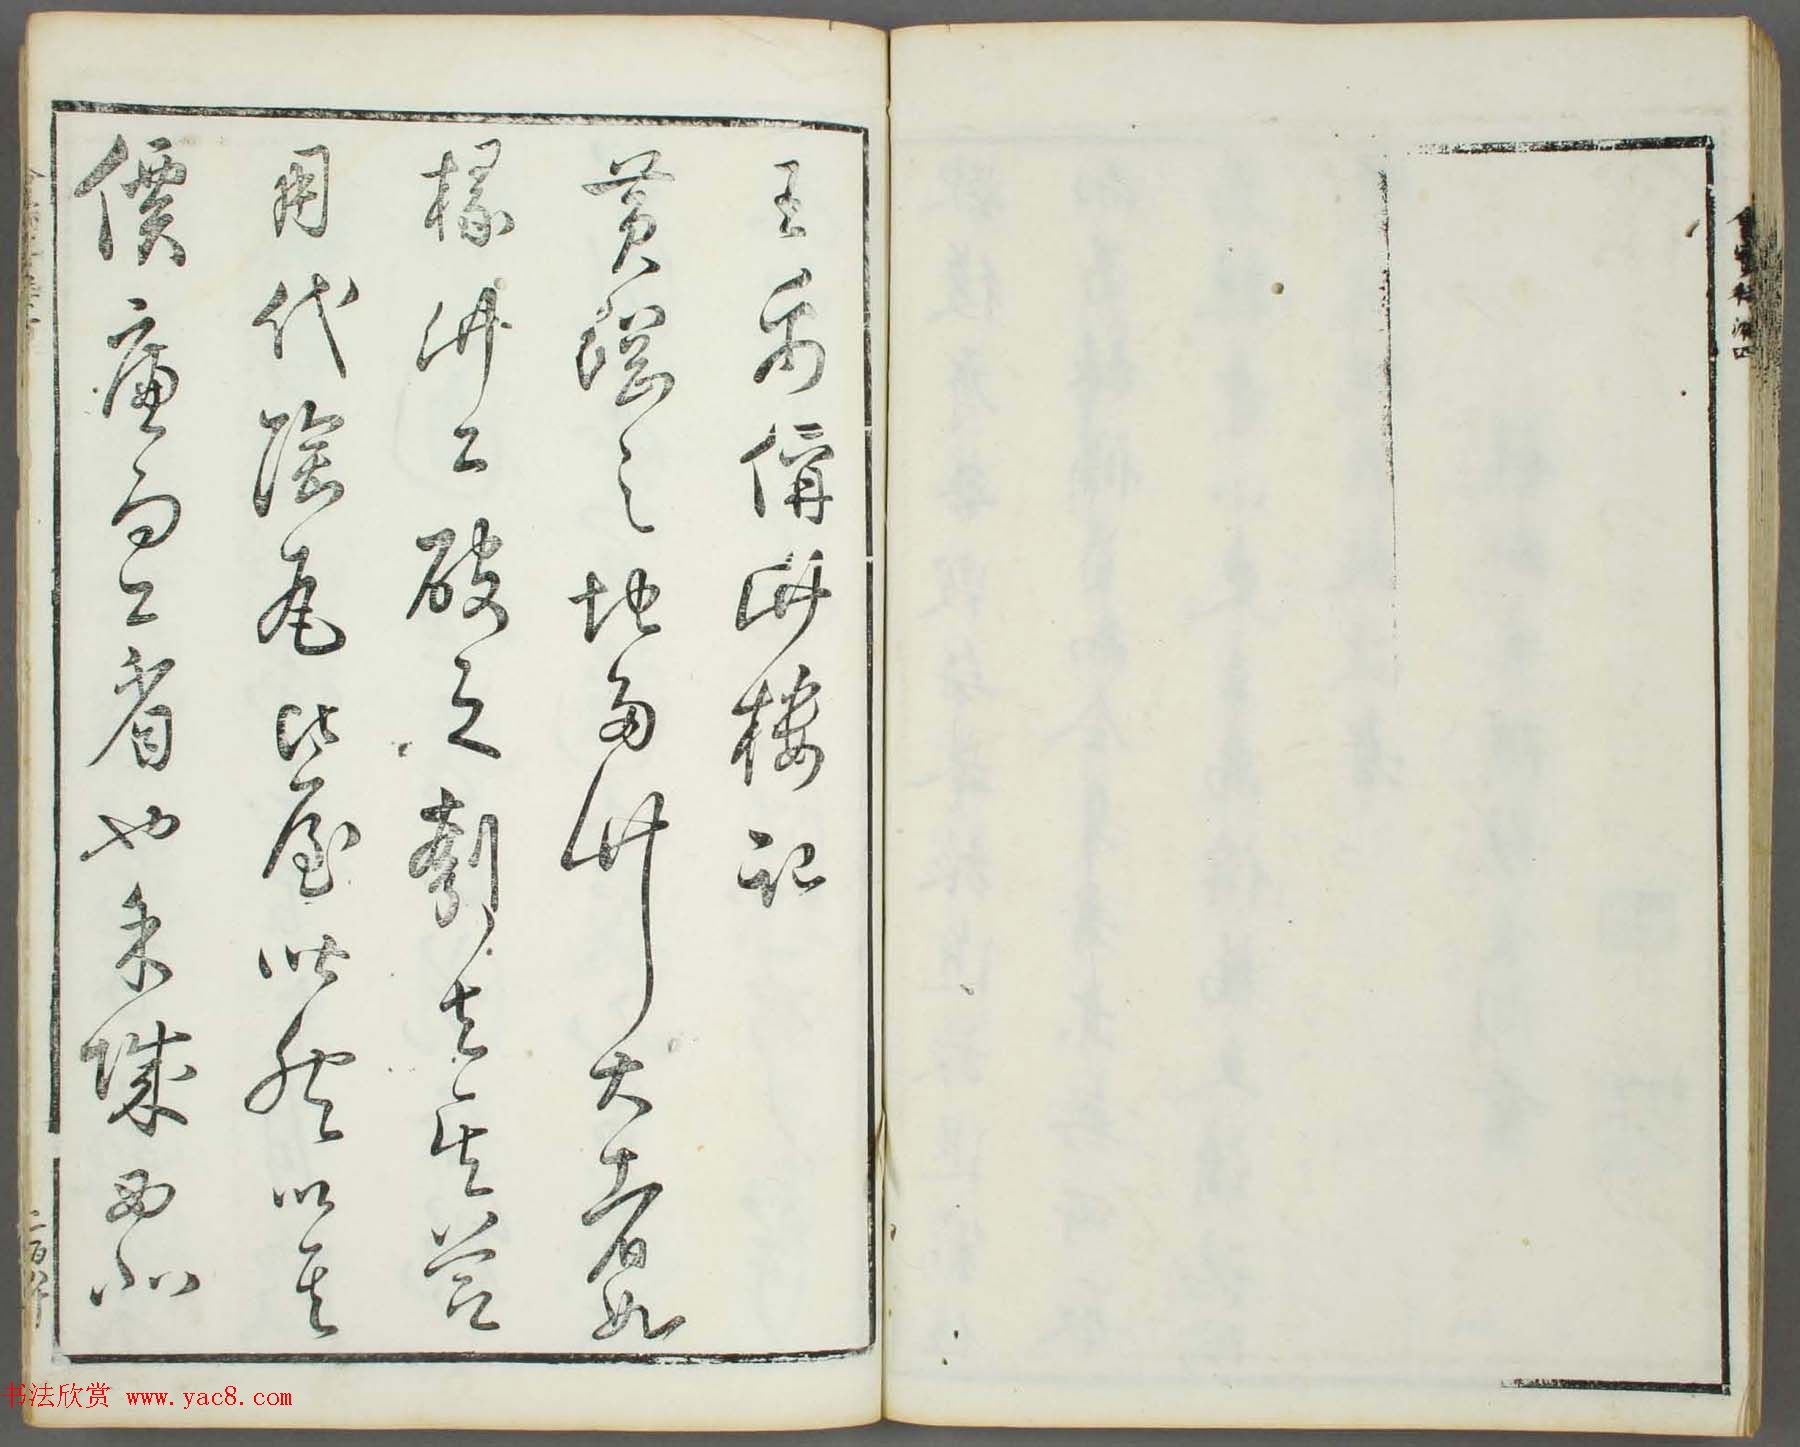 王禹偁竹樓記
黃岡之地多竹大者如
椽竹工破之刳去其節
用代陶瓦比屋皆然以其
價廉而工省也子城西北
书法欣赏 www.yac8.com